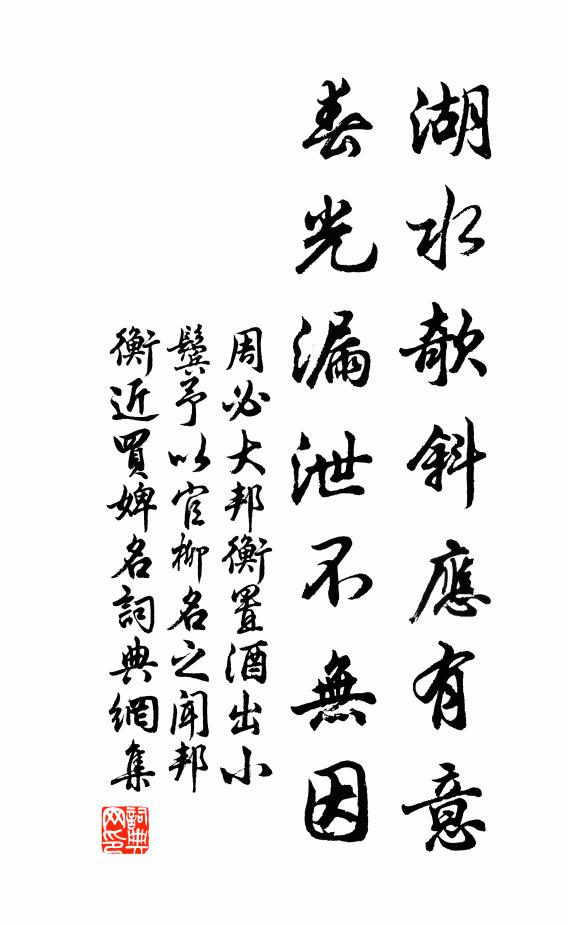 湖水欹斜應有意
春光漏泄不無因
周必大邦衡置酒出小
鬟予以官柳名之聞邦
衡近買婢名詞典網集
詞典
网印